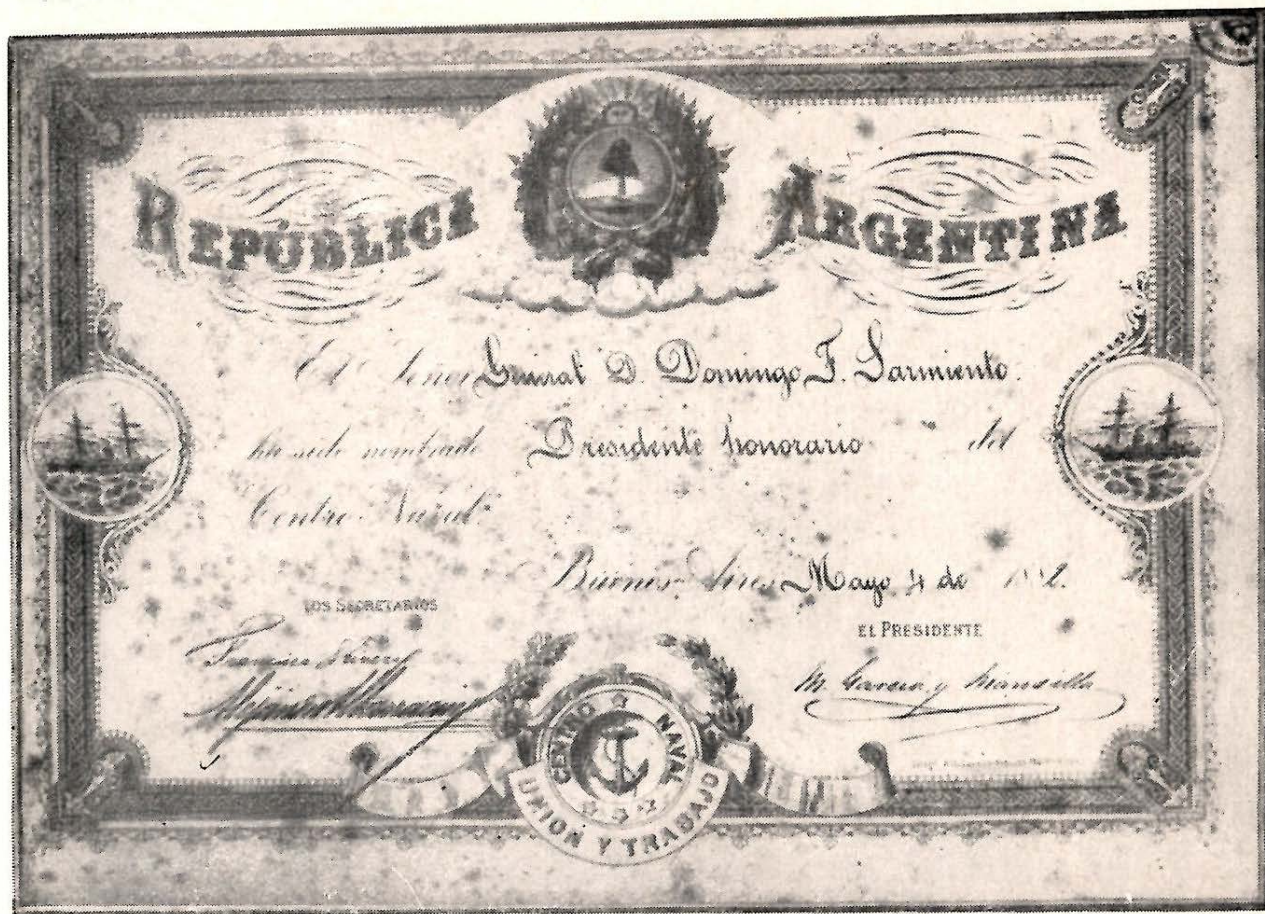 REPÚBLICA ARGENTINA
El Señor General D. Domingo F. Sarmiento.
ha sido nombrado Presidente honorario del
Centro Naval
Buenos Aires Mayo 4 de
LOS SECRETARIOS
EL PRESIDENTE
M. Garcia y Mansilla
CENTRO NAVAL
UNION Y TRABAJO